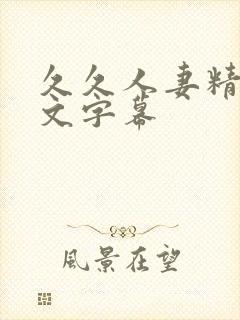 久久人妻精
文字幕
風景在望